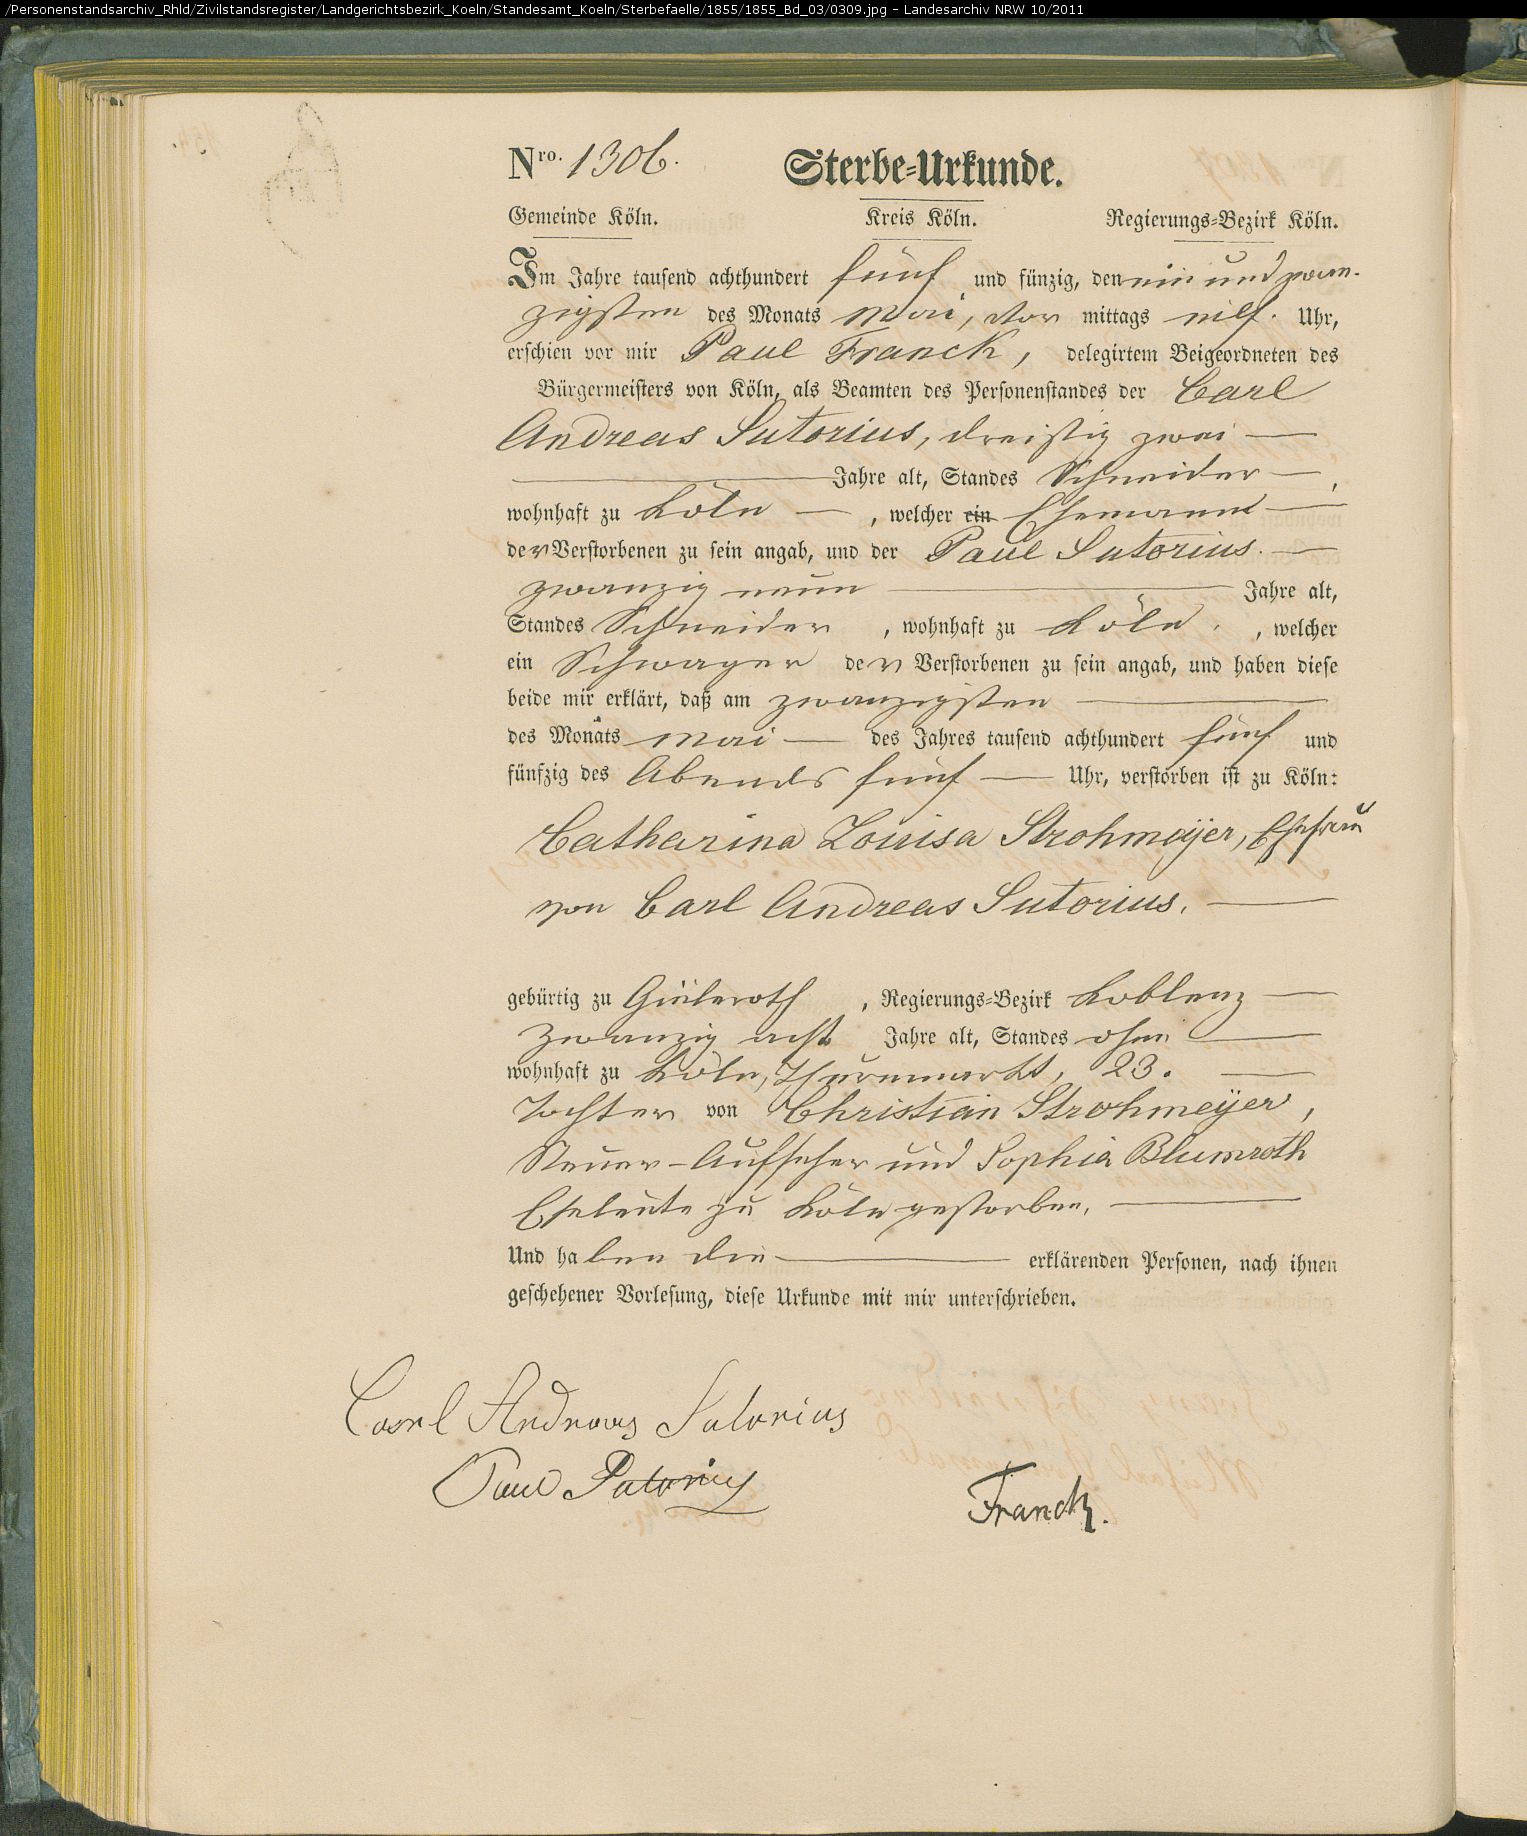 /Personenstandsarchiv_Rhld/Zivilstandsregister/Landgerichtsbezirk_Koeln/Standesamt_Koeln/Sterbefaelle/1855/1855_Bd_03/0309.jpg - Landesarchiv NRW 10/2011
Nro. 1306. Sterbe-Urkunde.
Gemeinde Köln. Kreis Köln. Regierungs-Bezirk Köln.
Im Jahre tausend achthundert fünf und fünzig, den ein und zwan-
zigsten des Monats Mai, Vor mittags eilf. Uhr,
erschien vor mir Paul Franck, delegirtem Beigeordneten des
Bürgermeisters von Köln, als Beamten des Personenstandes der Carl
Andreas Sutorius, dreißig zwei
Jahre alt, Standes Schneider,
wohnhaft zu Köln, welcher ein Ehemann
der Verstorbenen zu sein angab, und der Paul Sutorius.
zwanzig neun Jahre alt,
Standes Schneider, wohnhaft zu Köln., welcher
ein Schwager der Verstorbenen zu sein angab, und haben diese
beide mir erklärt, daß am zwanzigsten
des Monats Mai des Jahres tausend achthundert fünf und
fünfzig des Abends fünf Uhr, verstorben ist zu Köln:
Catharina Louisa Strohmeÿer, Ehefrau
von Carl Andreas Sutorius.
gebürtig zu , Regierungs-Bezirk Koblenz
zwanzig acht Jahre alt, Standes ohne
wohnhaft zu Köln, Thurnmarkt, 23.
Tochter von Christian Strohmeÿer,
Steuer-Aufseher und Sophia Blumroth
Eheleute zu Köln gestorben.
Und haben die erklärenden Personen, nach ihnen
geschehener Vorlesung, diese Urkunde mit mir unterschrieben.
Carl Andreas Sutorius
Paul Sutorius
Franck.